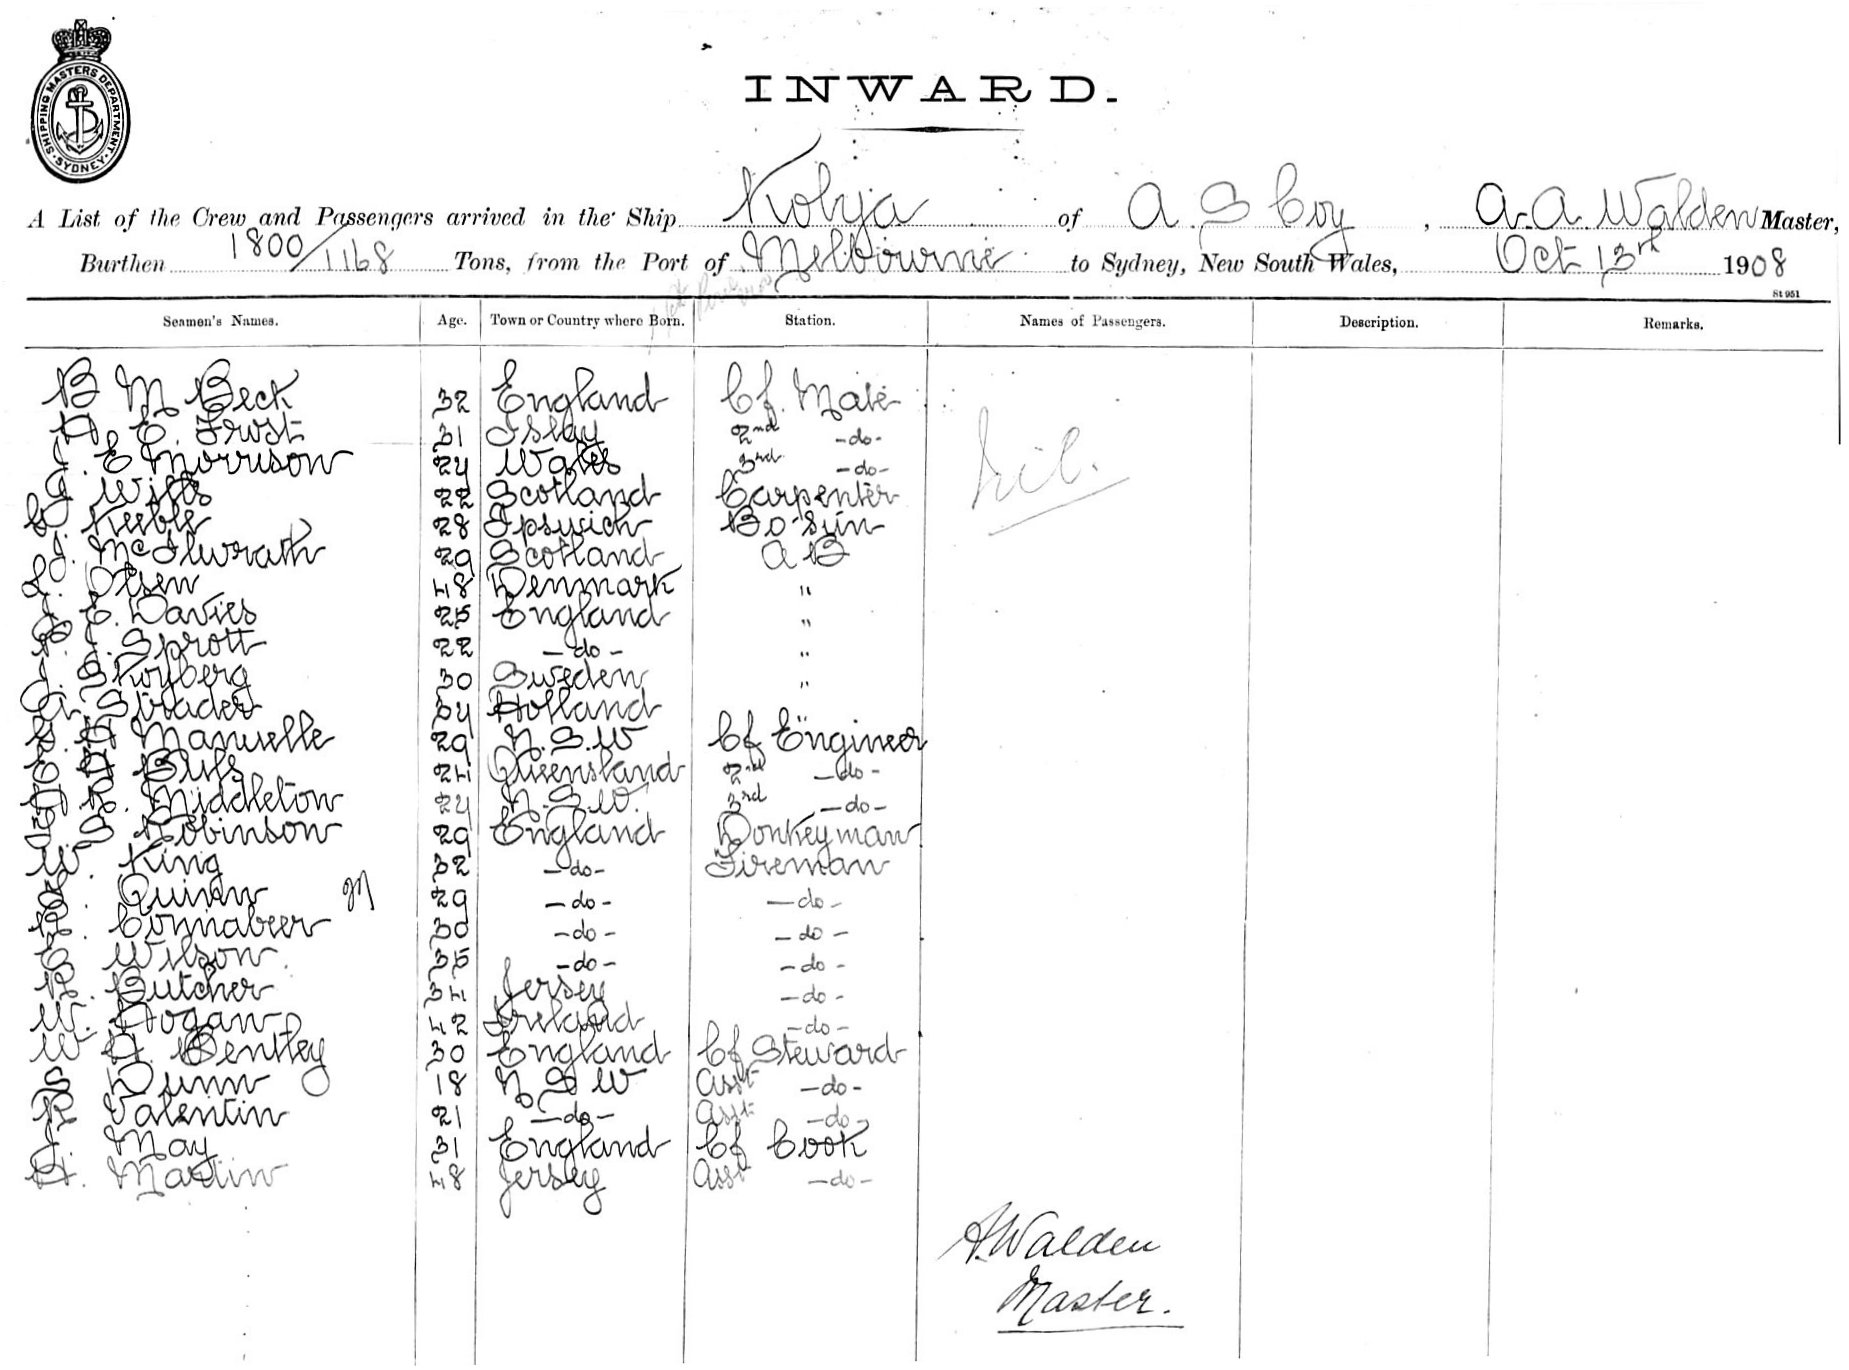 SHIPPING MASTERS DEPARTMENT. SYDNEY.
INWARD.
A List of the Crew and Passengers arrived in the Ship Kobya of A. S Coy, A. A. Walden Master,
Burthen 1800/1168 Tons, from the Port of Melbourne to Sydney, New South Wales, Oct 13rd 1908
St 951
Seamen's Names. Age. Town or Country where Born. Station. Names of Passengers. Description. Remarks.
B M Beck 32 England Cf. Mate
H E. Frost 31 Islay 2nd -do-
J. E Morrison 24 Wales 3rd -do-
J Wills 22 Scotland Carpenter
G Keeble 28 Ipswich Bo'sun
J. McIlwrath 29 Scotland A B
L. Olsen 48 Denmark "
J E. Davies 25 England "
J. Sprott 22 -do- "
J. Skoyberg 30 Sweden "
A. Strader 34 Holland "
G. H Manuelle 29 N. S. W Cf Engineer
H 24 Queensland 2nd -do-
R. Middleton 24 N. S. W. 3rd -do-
S Robinson 29 England Donkeyman
W. King 32 -do- Fireman
Quinn 29 -do- -do-
Connabeer 30 -do- -do-
C Wilson. 35 -do- -do-
R. Butcher 34 Jersey -do-
W. Hogan 42 Ireland -do-
W H. Bentley 30 England Cf Steward
S Dunn 18 N S W Asst -do-
R Valentin 21 -do- Asst -do-
J. May 31 England Cf Cook
H. Martin 48 Jersey Asst -do-
Nil.
A. Walden
Master.